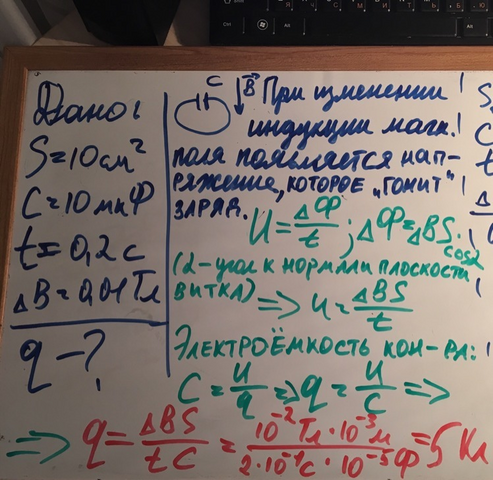 Дано:
S=10см²
C=10мкФ
t=0,2с
ΔB=0,01Тл
q-?
C
B⃗
При изменении
индукции магн.
поля появляется нап-
ряжение, которое "гонит"
заряд.
U=ΔФ/t; ΔФ=ΔBS·cosα
(α-угол к нормали плоскости
витка) => U=ΔBS/t
Электроёмкость кон-ра:
C=U/q => q=U/C =>
=> q=ΔBS/tC = 10⁻²Тл·10⁻³м/2·10⁻¹с·10⁻⁵Ф =5 Кл
S
C
t
Δ
Ctrl
Alt